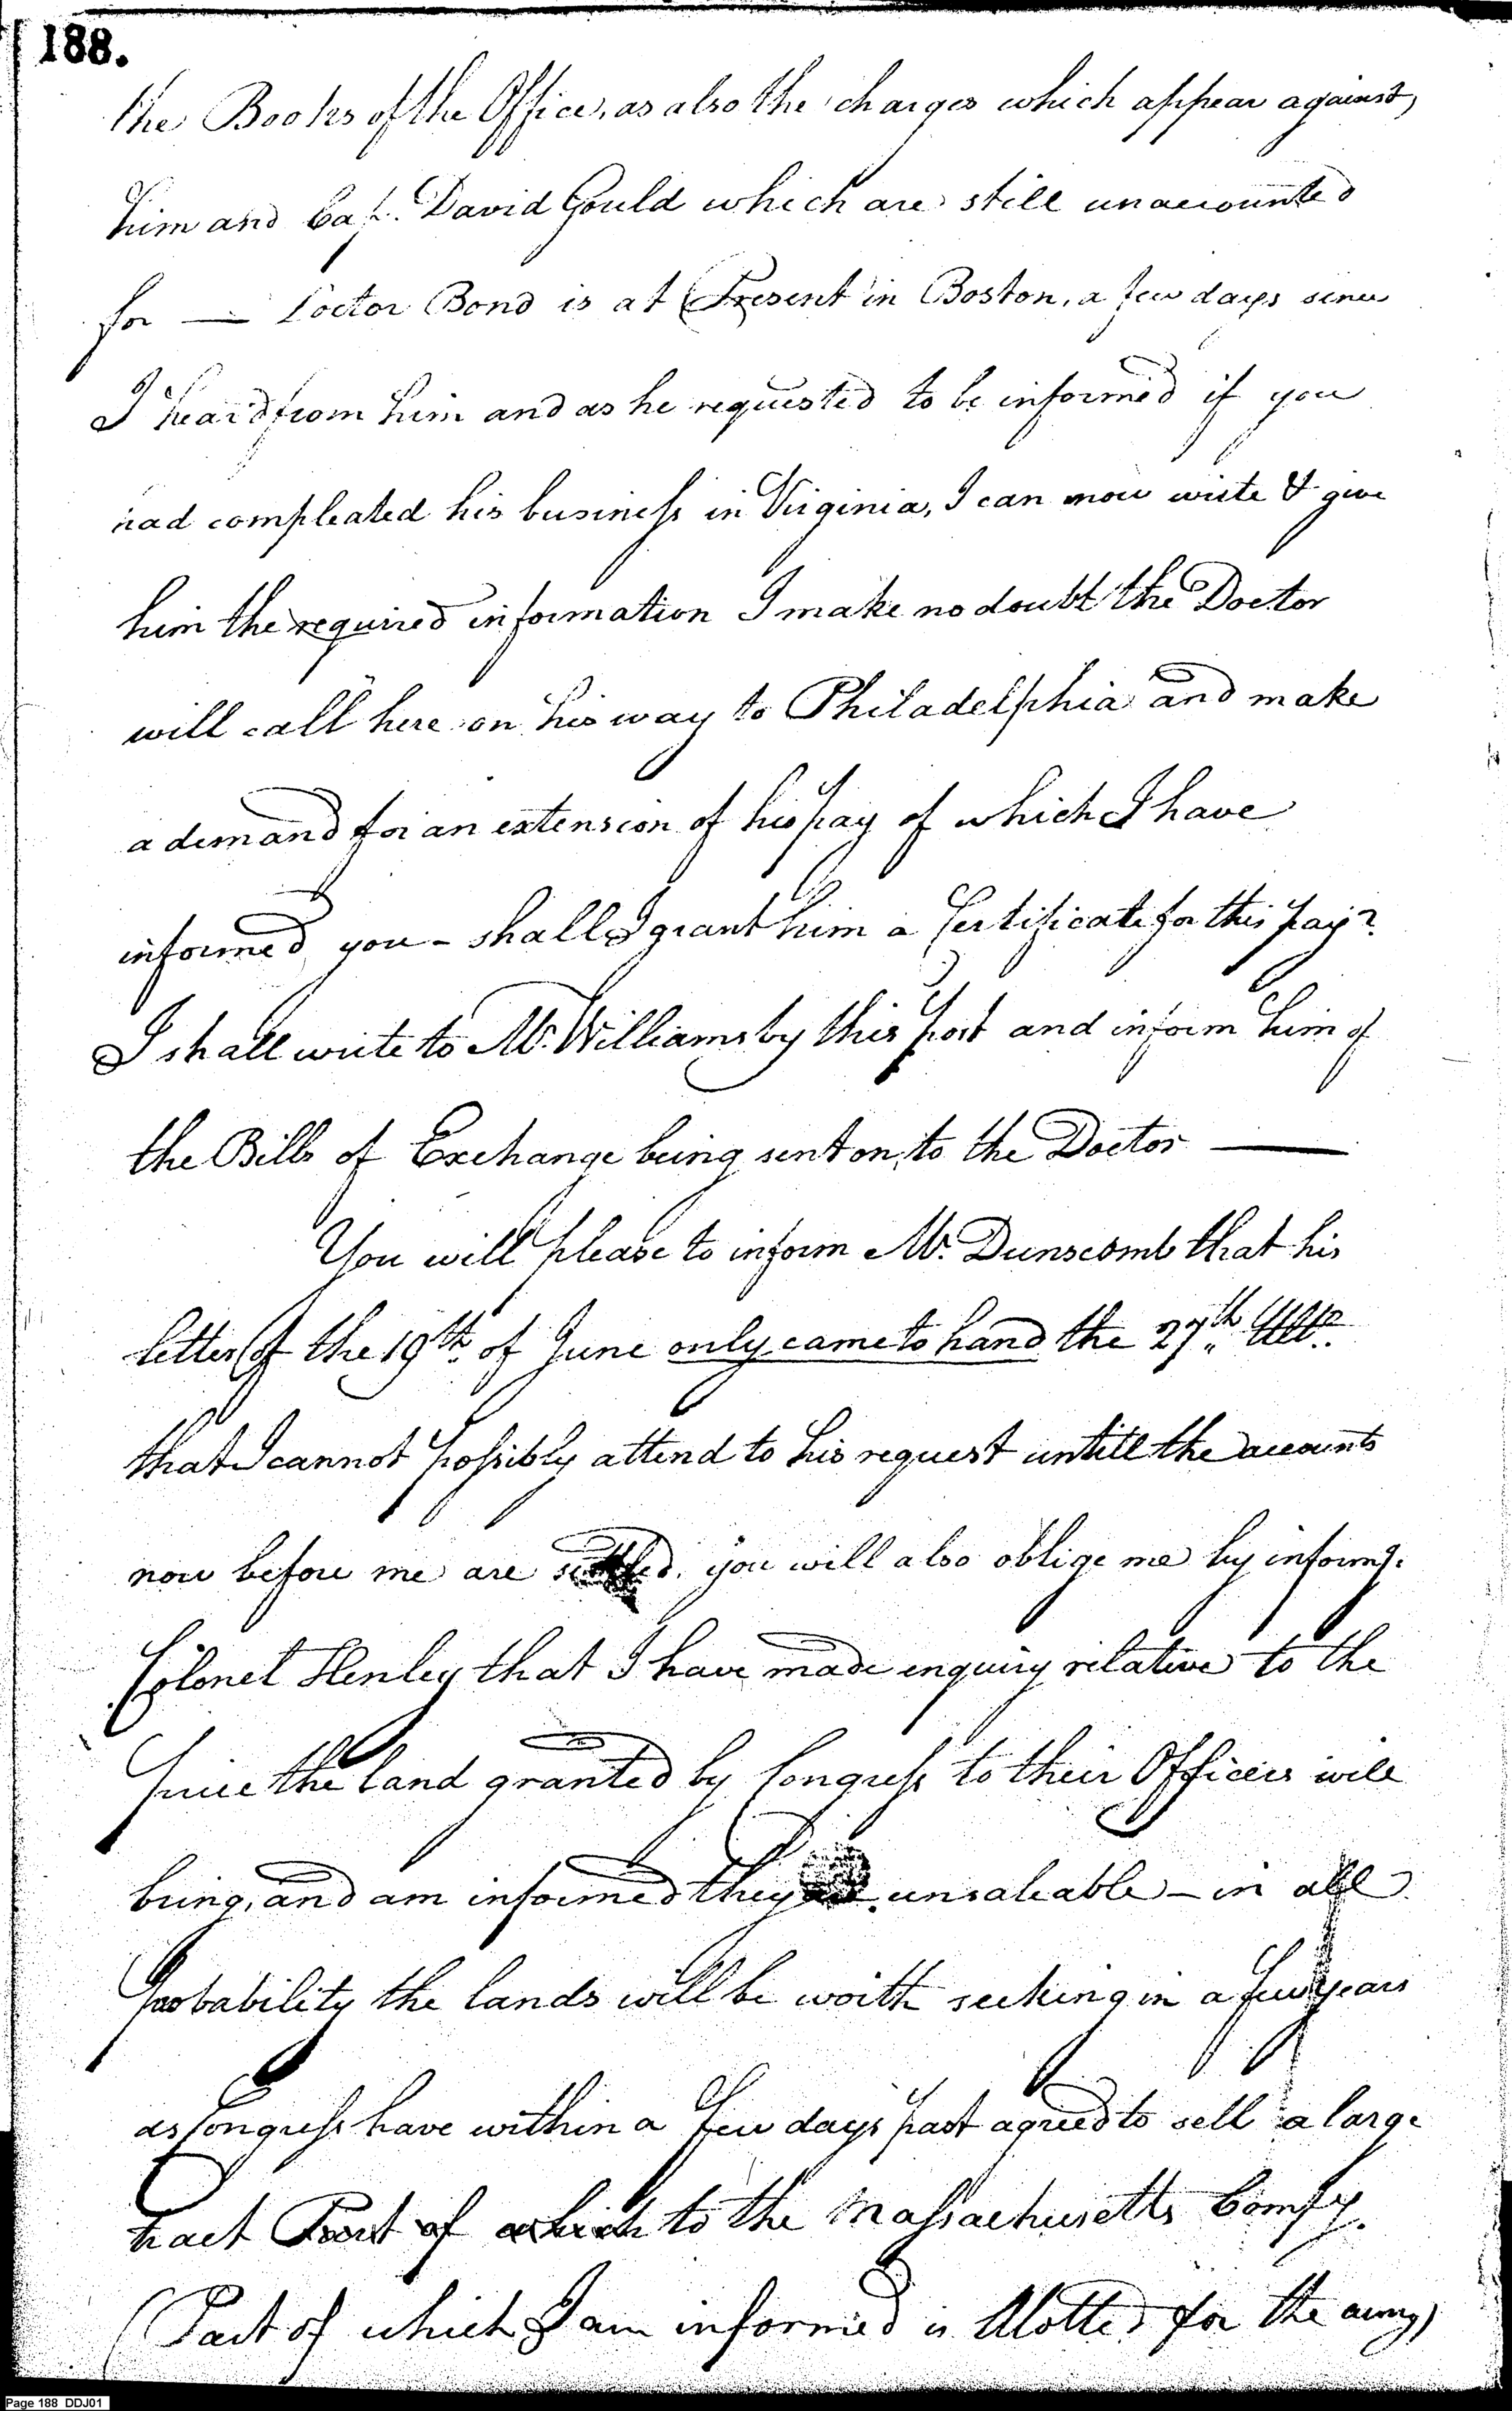 188.
the Books of the Office, as also the charges which appear against
him and Capt. David Gould which are still unaccounted
for — Doctor Bond is at Present in Boston, a few days since
I heard from him and as he requested to be informed if you
had compleated his business in Virginia, I can now write & give
him the required information I make no doubt the Doctor
will call here on his way to Philadelphia and make
a demand for an extension of his pay of which I have
informed you - shall I grant him a Certificate for this pay?
I shall write to Mr. Williams by this post and inform him of
the Bills of Exchange being sent on to the Doctor —
You will please to inform Mr. Dunscomb that his
letter of the 19th. of June only came to hand the 27th. Ulto.
that I cannot possibly attend to his request untill the accounts
now before me are settled. you will also oblige me by informg.
Colonel Henley that I have made enquiry relative to the
price the land granted by Congress to their Officers will
bring, and am informed they are unsaleable - in all
Probability the lands will be worth seeking in a few years
as Congress have within a few days past agreed to sell a large
tract Part of which to the Massachusetts Compy.
(Part of which I am informed is Alotted for the army)
Page 188 DDJ01